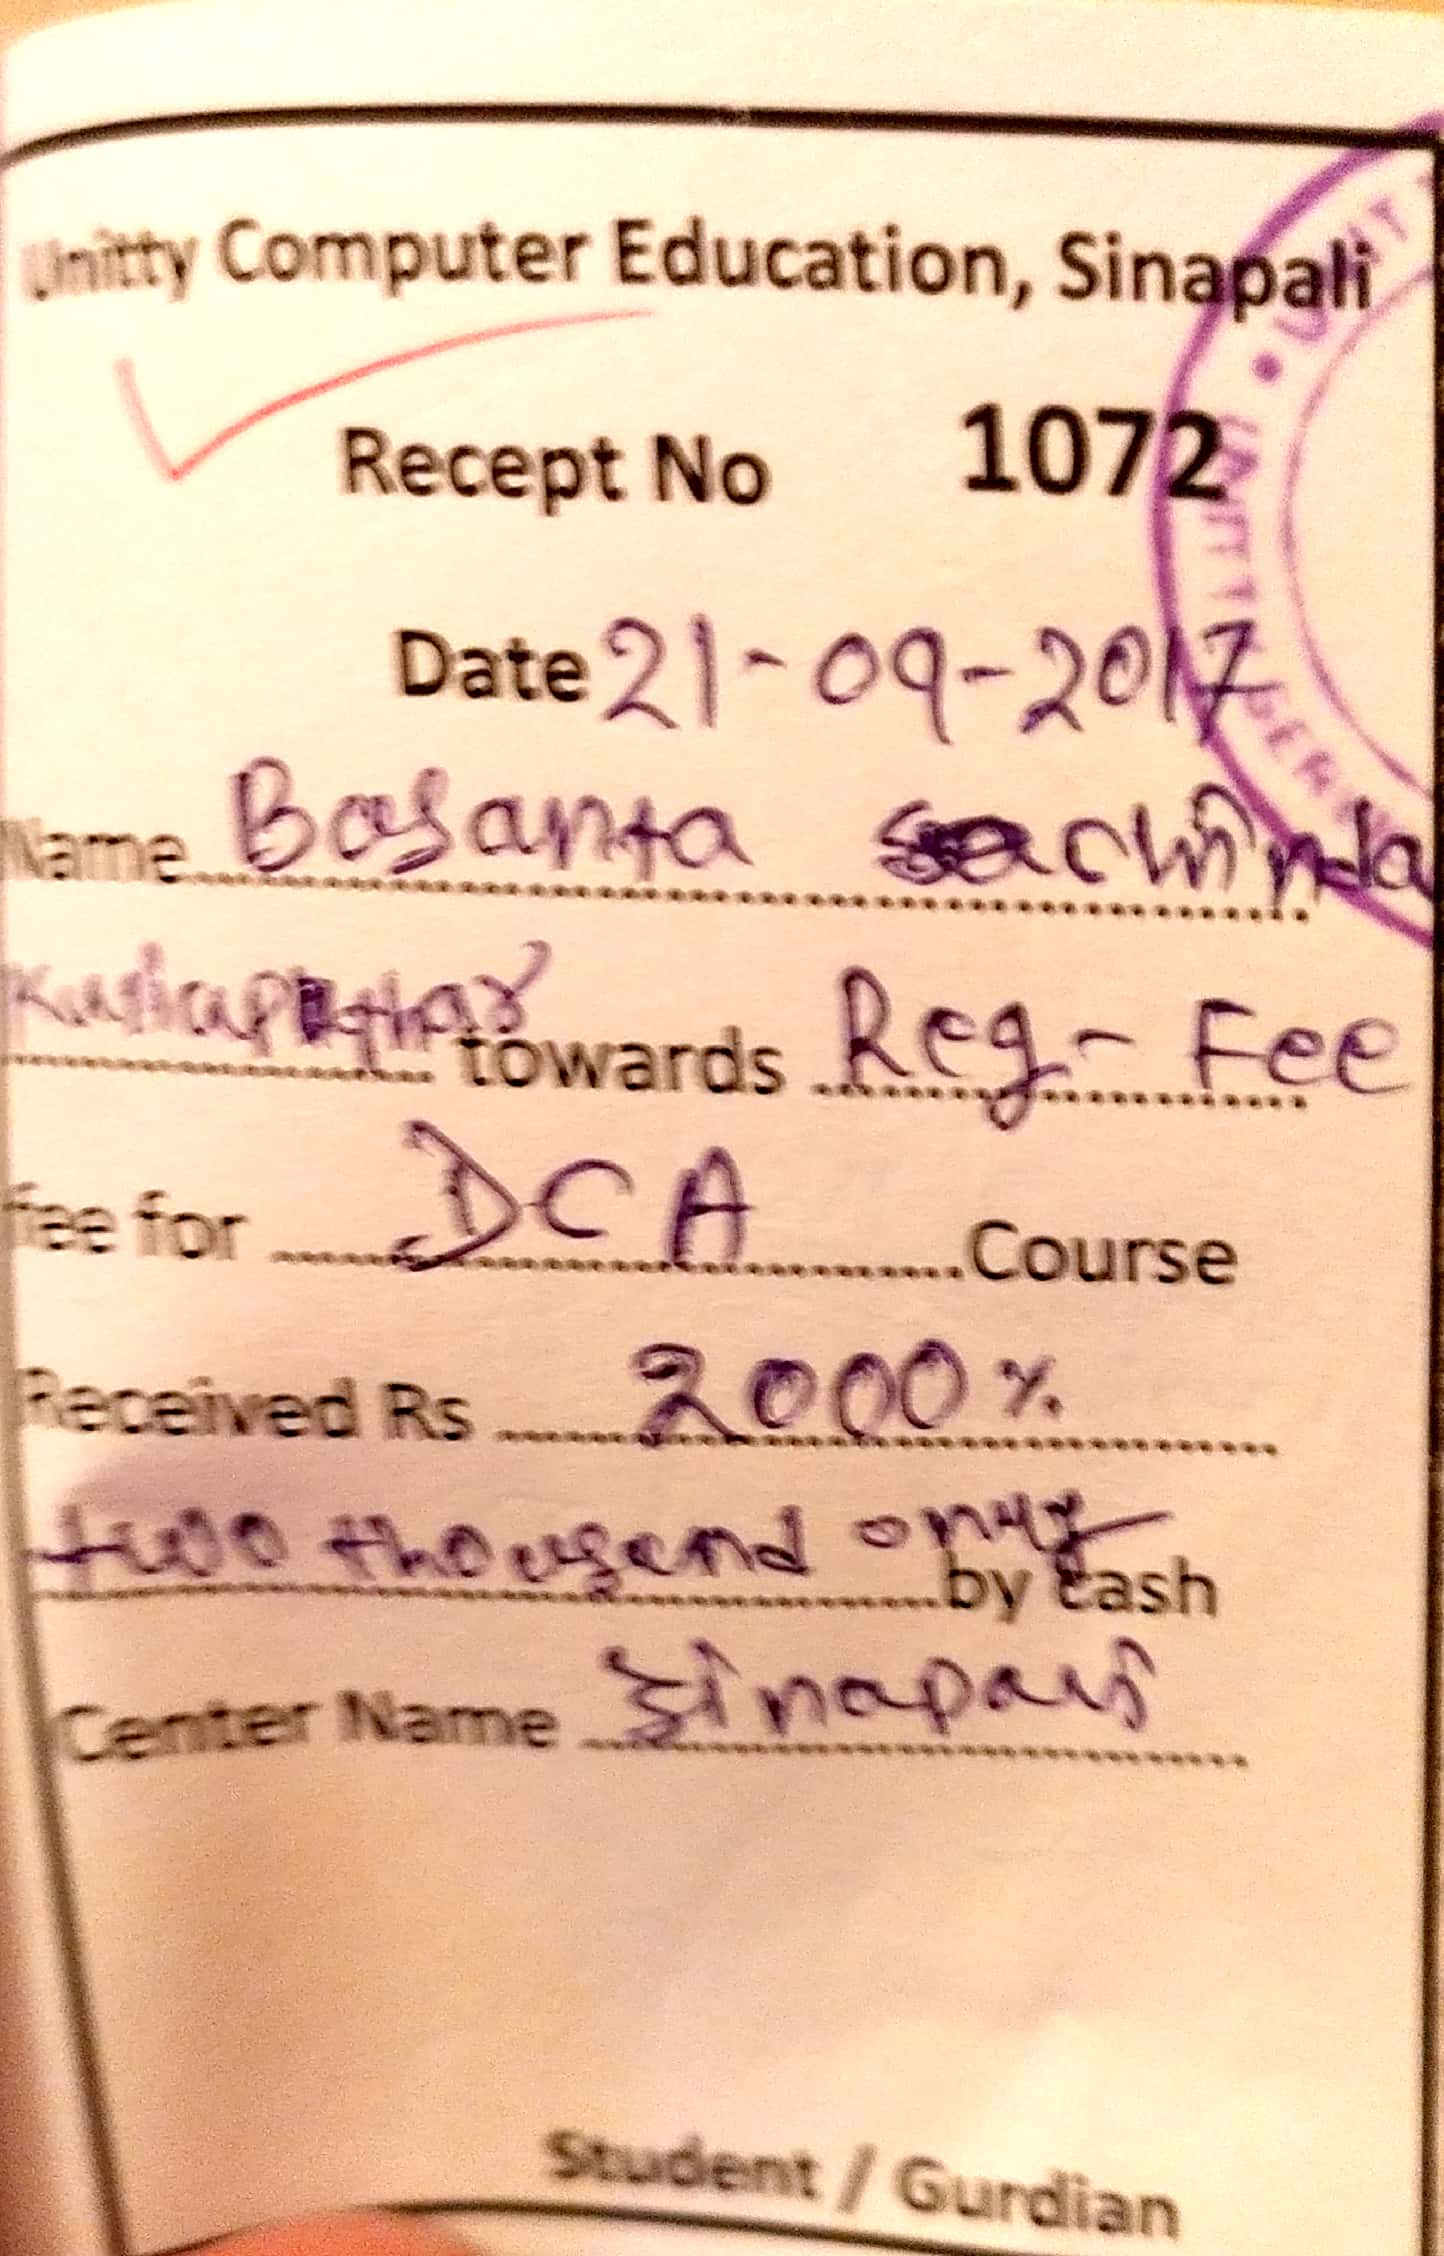 Unitty Computer Education, Sinapali
Recept No 1072
Date 21-09-2017
Name Basanta
towards Reg- Fee
fee for DCA Course
Received Rs 2000 %.
two thousand only by cash
Center Name Sinapali
Student / Gurdian